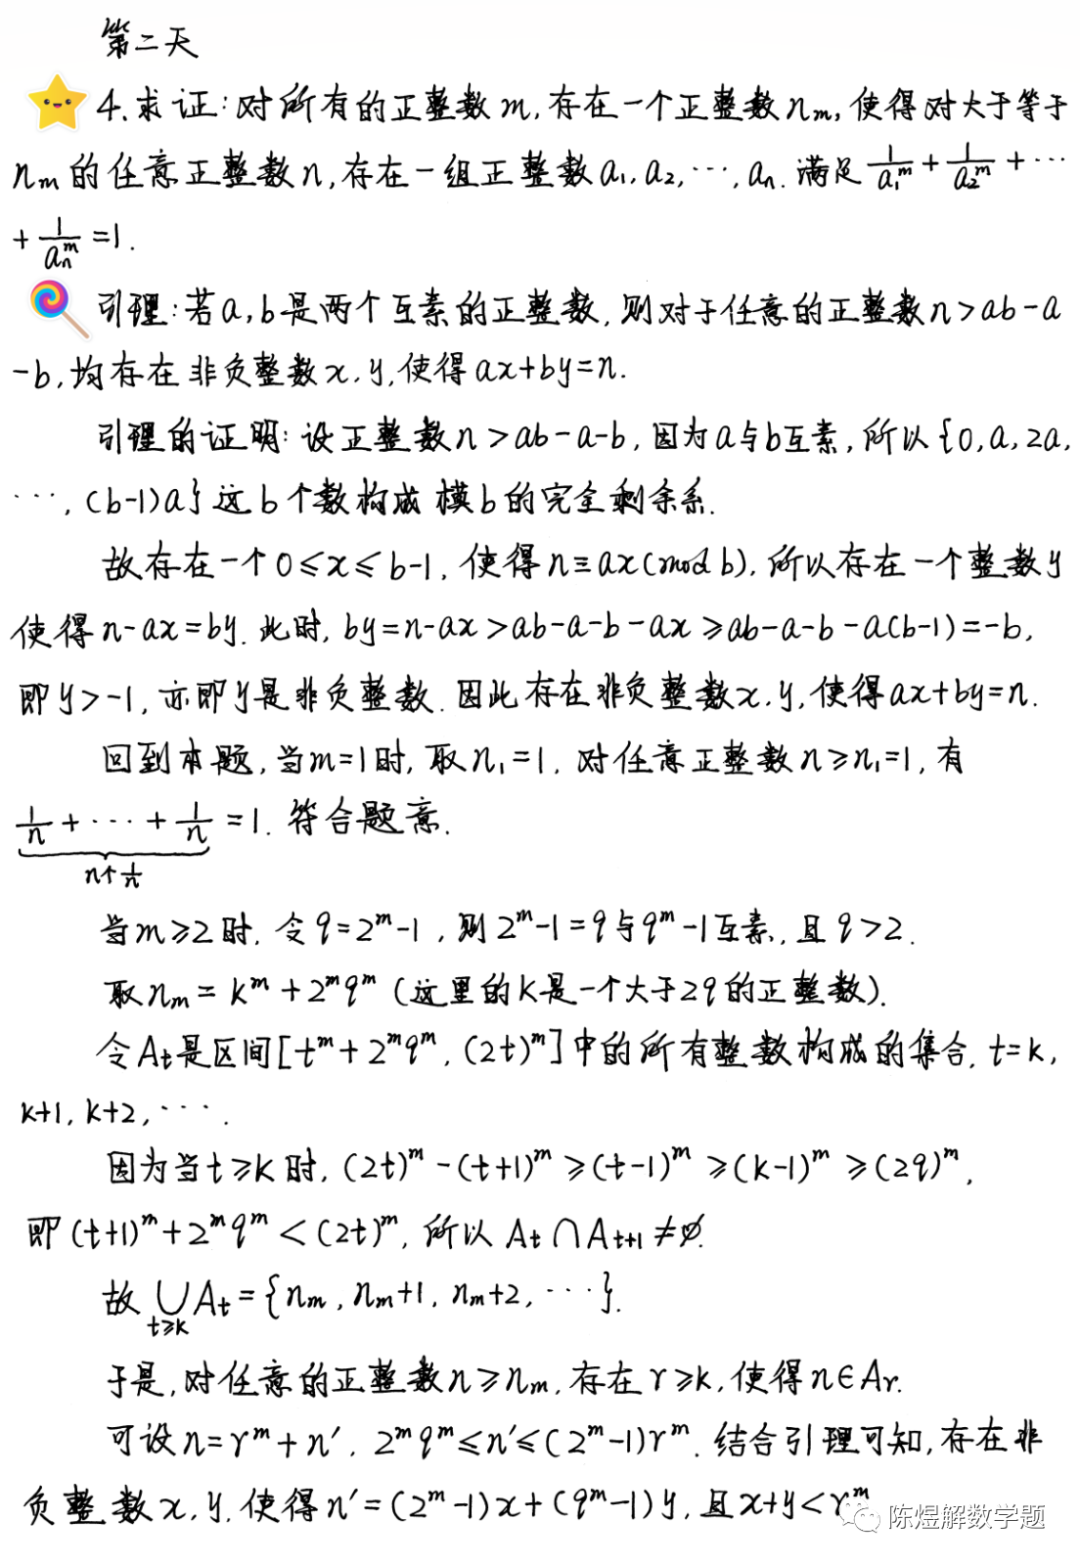 第二天
4.求证:对所有的正整数m,存在一个正整数nₘ,使得对大于等于
nₘ的任意正整数n,存在一组正整数a₁,a₂,⋯,aₙ.满足1/a₁ᵐ+1/a₂ᵐ+⋯
+1/aₙᵐ=1.
引理:若a,b是两个互素的正整数,则对于任意的正整数n>ab-a
-b,均存在非负整数x,y,使得ax+by=n.
引理的证明:设正整数n>ab-a-b,因为a与b互素,所以{0,a,2a,
⋯,(b-1)a}这b个数构成模b的完全剩余系.
故存在一个0≤x≤b-1,使得n≡ax(mod b).所以存在一个整数y
使得n-ax=by.此时,by=n-ax>ab-a-b-ax≥ab-a-b-a(b-1)=-b,
即y>-1,亦即y是非负整数.因此存在非负整数x,y,使得ax+by=n.
回到本题,当m=1时,取n₁=1.对任意正整数n≥n₁=1,有
1/n+⋯+1/n=1.符合题意.
n个1/n
当m≥2时.令q=2ᵐ-1,则2ᵐ-1=q与qᵐ-1互素,且q>2.
取nₘ=kᵐ+2ᵐqᵐ(这里的k是一个大于2q的正整数).
令Aₜ是区间[tᵐ+2ᵐqᵐ,(2t)ᵐ]中的所有整数构成的集合,t=k,
k+1,k+2,⋯.
因为当t≥k时,(2t)ᵐ-(t+1)ᵐ≥(t-1)ᵐ≥(k-1)ᵐ≥(2q)ᵐ,
即(t+1)ᵐ+2ᵐqᵐ<(2t)ᵐ,所以Aₜ∩Aₜ₊₁≠∅.
故⋃Aₜ={nₘ,nₘ+1,nₘ+2,⋯}.
t≥k
于是,对任意的正整数n≥nₘ,存在r≥k,使得n∈Aᵣ.
可设n=rᵐ+n′,2ᵐqᵐ≤n′≤(2ᵐ-1)rᵐ.结合引理可知,存在非
负整数x,y,使得n′=(2ᵐ-1)x+(qᵐ-1)y,且x+y<rᵐ
陈煜解数学题